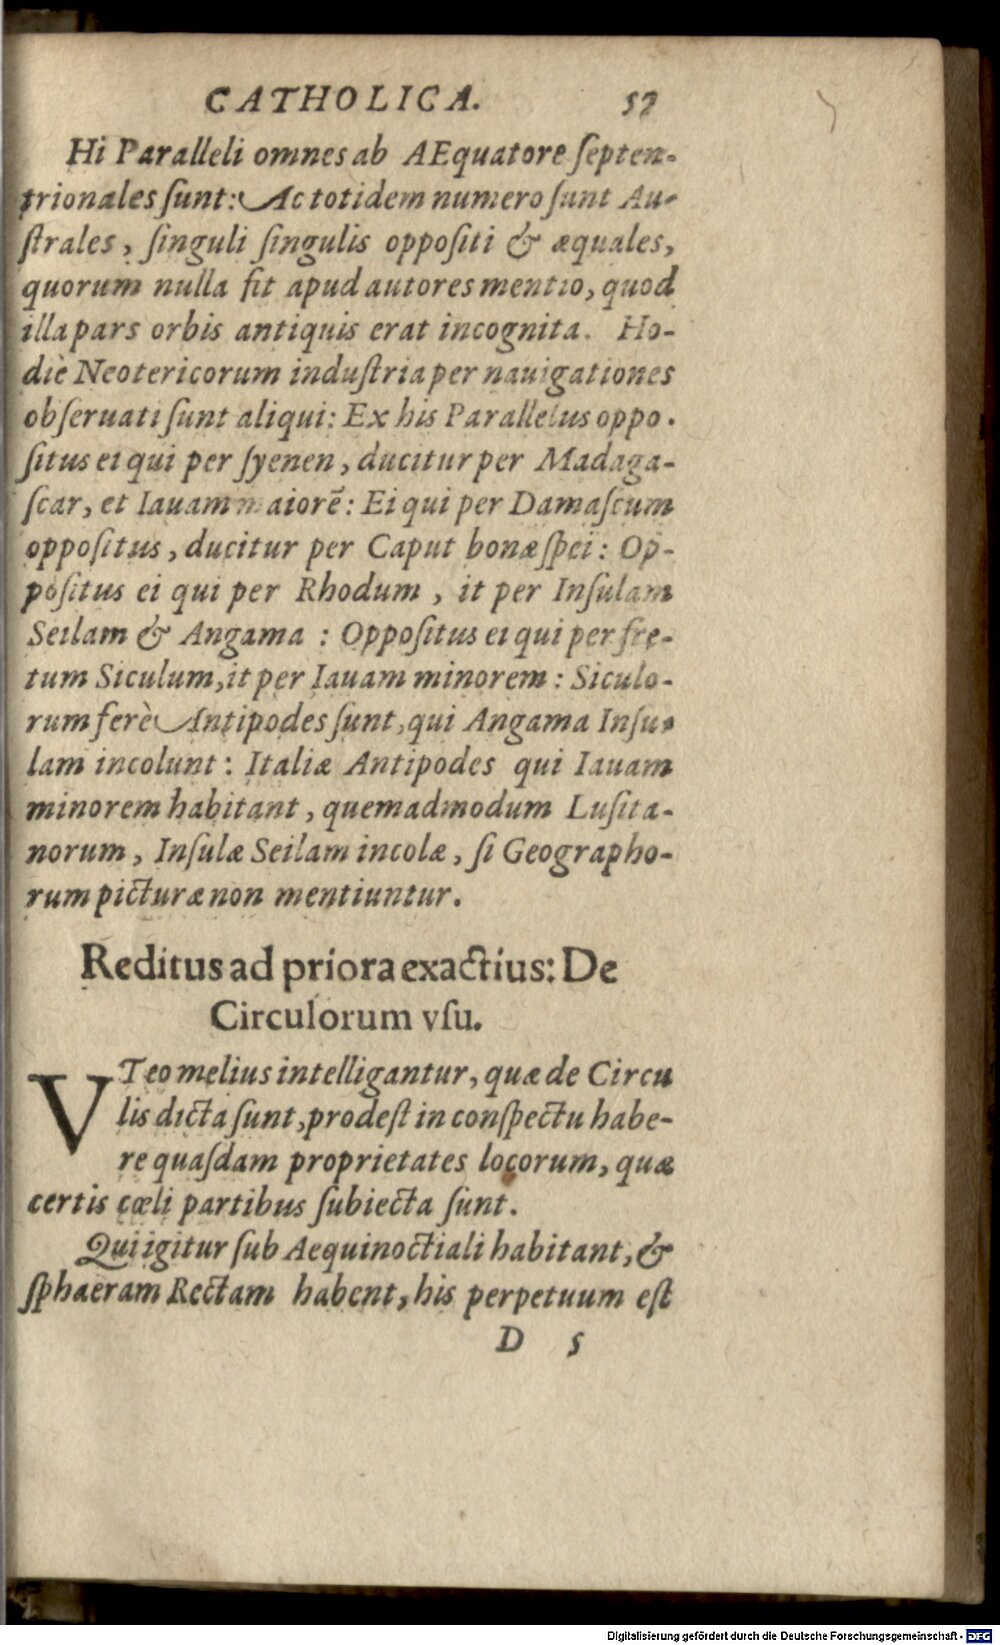 CATHOLICA. 57
Hi Paralleli omnes ab AEquatore ſepten-
trionales ſunt: Ac totidem numero ſunt Au-
ſtrales, ſinguli ſingulis oppoſiti & æquales,
quorum nulla fit apud autores mentio, quod
illa pars orbis antiquis erat incognita. Ho-
diè Neotericorum induſtria per nauigationes
obſeruati ſunt aliqui: Ex his Parallelus oppo-
ſitus ei qui per ſyenen, ducitur per Madaga-
ſcar, et Iauam maiorē: Ei qui per Damaſcum
oppoſitus, ducitur per Caput bonæ ſpei: Op-
poſitus ei qui per Rhodum, it per Inſulam
Seilam & Angama: Oppoſitus ei qui per fre-
tum Siculum, it per Iauam minorem: Siculo-
rum ferè Antipodes ſunt, qui Angama Inſu-
lam incolunt: Italiæ Antipodes qui Iauam
minorem habitant, quemadmodum Luſita-
norum, Inſulæ Seilam incolæ, ſi Geographo-
rum picturæ non mentiuntur.
Reditus ad priora exactius: De
Circulorum vſu.
VT eo melius intelligantur, quæ de Circu
lis dicta ſunt, prodeſt in conſpectu habe-
re quaſdam proprietates locorum, quæ
certis cœli partibus ſubiecta ſunt.
Qui igitur ſub Aequinoctiali habitant, &
ſphaeram Rectam habent, his perpetuum eſt
D 5
Digitalisierung gefördert durch die Deutsche Forschungsgemeinschaft - DFG